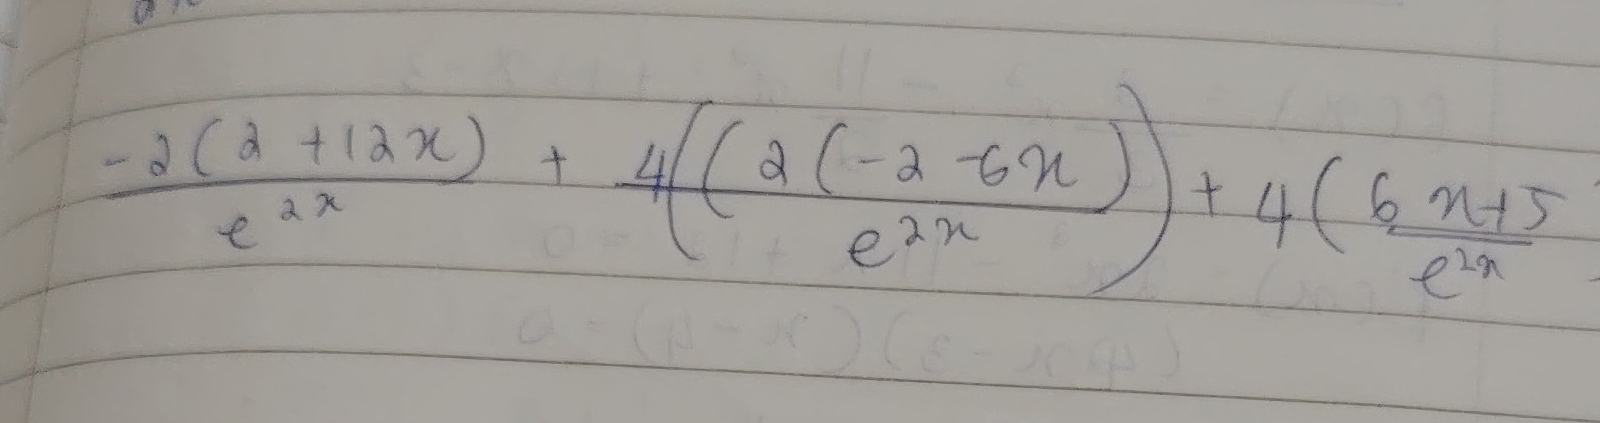 -2(2+12x)/e^{2x} + 4((2(-2-6x))/e^{2x}) + 4(6x+5/e^{2x}